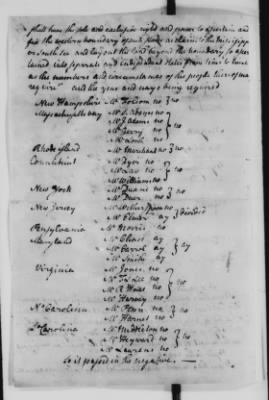 shall have the sole and exclusive right and power to ascertain and
fix the western boundary of such states as claim to the Mississippi
or South Sea and lay out the land beyond the boundary so ascer-
tained into separate and independent states from time to time
as the numbers and circumstances of the people thereof may
require and the yeas and nays being required
New Hampshire Mr Folsom no } no
Massachusetts bay Mr S. Adams no
Mr J. Adams no
Mr Gerry no } no
Mr Lovell no
Rhode Island Mr Marchant no } no
Connecticut Mr Dyer no
Mr Law no } no
Mr Williams no
New York Mr Duane no } no
Mr Duer no
New Jersey Mr Witherspoon no } divided
Mr Elmer ay
Pensylvania Mr Morris no
Maryland Mr Chase ay
Mr Carrol ay } ay
Mr Smith ay
Virginia Mr Jones no
Mr F. L. Lee no } no
Mr R H Lee no
Mr Harvey no
No Carolina Mr Penn no } no
Mr Harnet no
So Carolina Mr Middleton no
Mr Heyward no } no
Mr Laurens no
So it passed in the negative